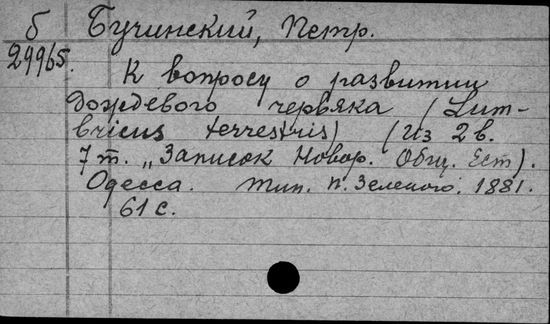 б Бучинский, Петр.
29965.
К вопросу о развитии
дождевого червяка (Lum-
bricus terrestris) (Из 2 в.
7 т. „Записок Новор. Общ. Ест).
Одесса. тип. П. Зеленого. 1881.
61 с.